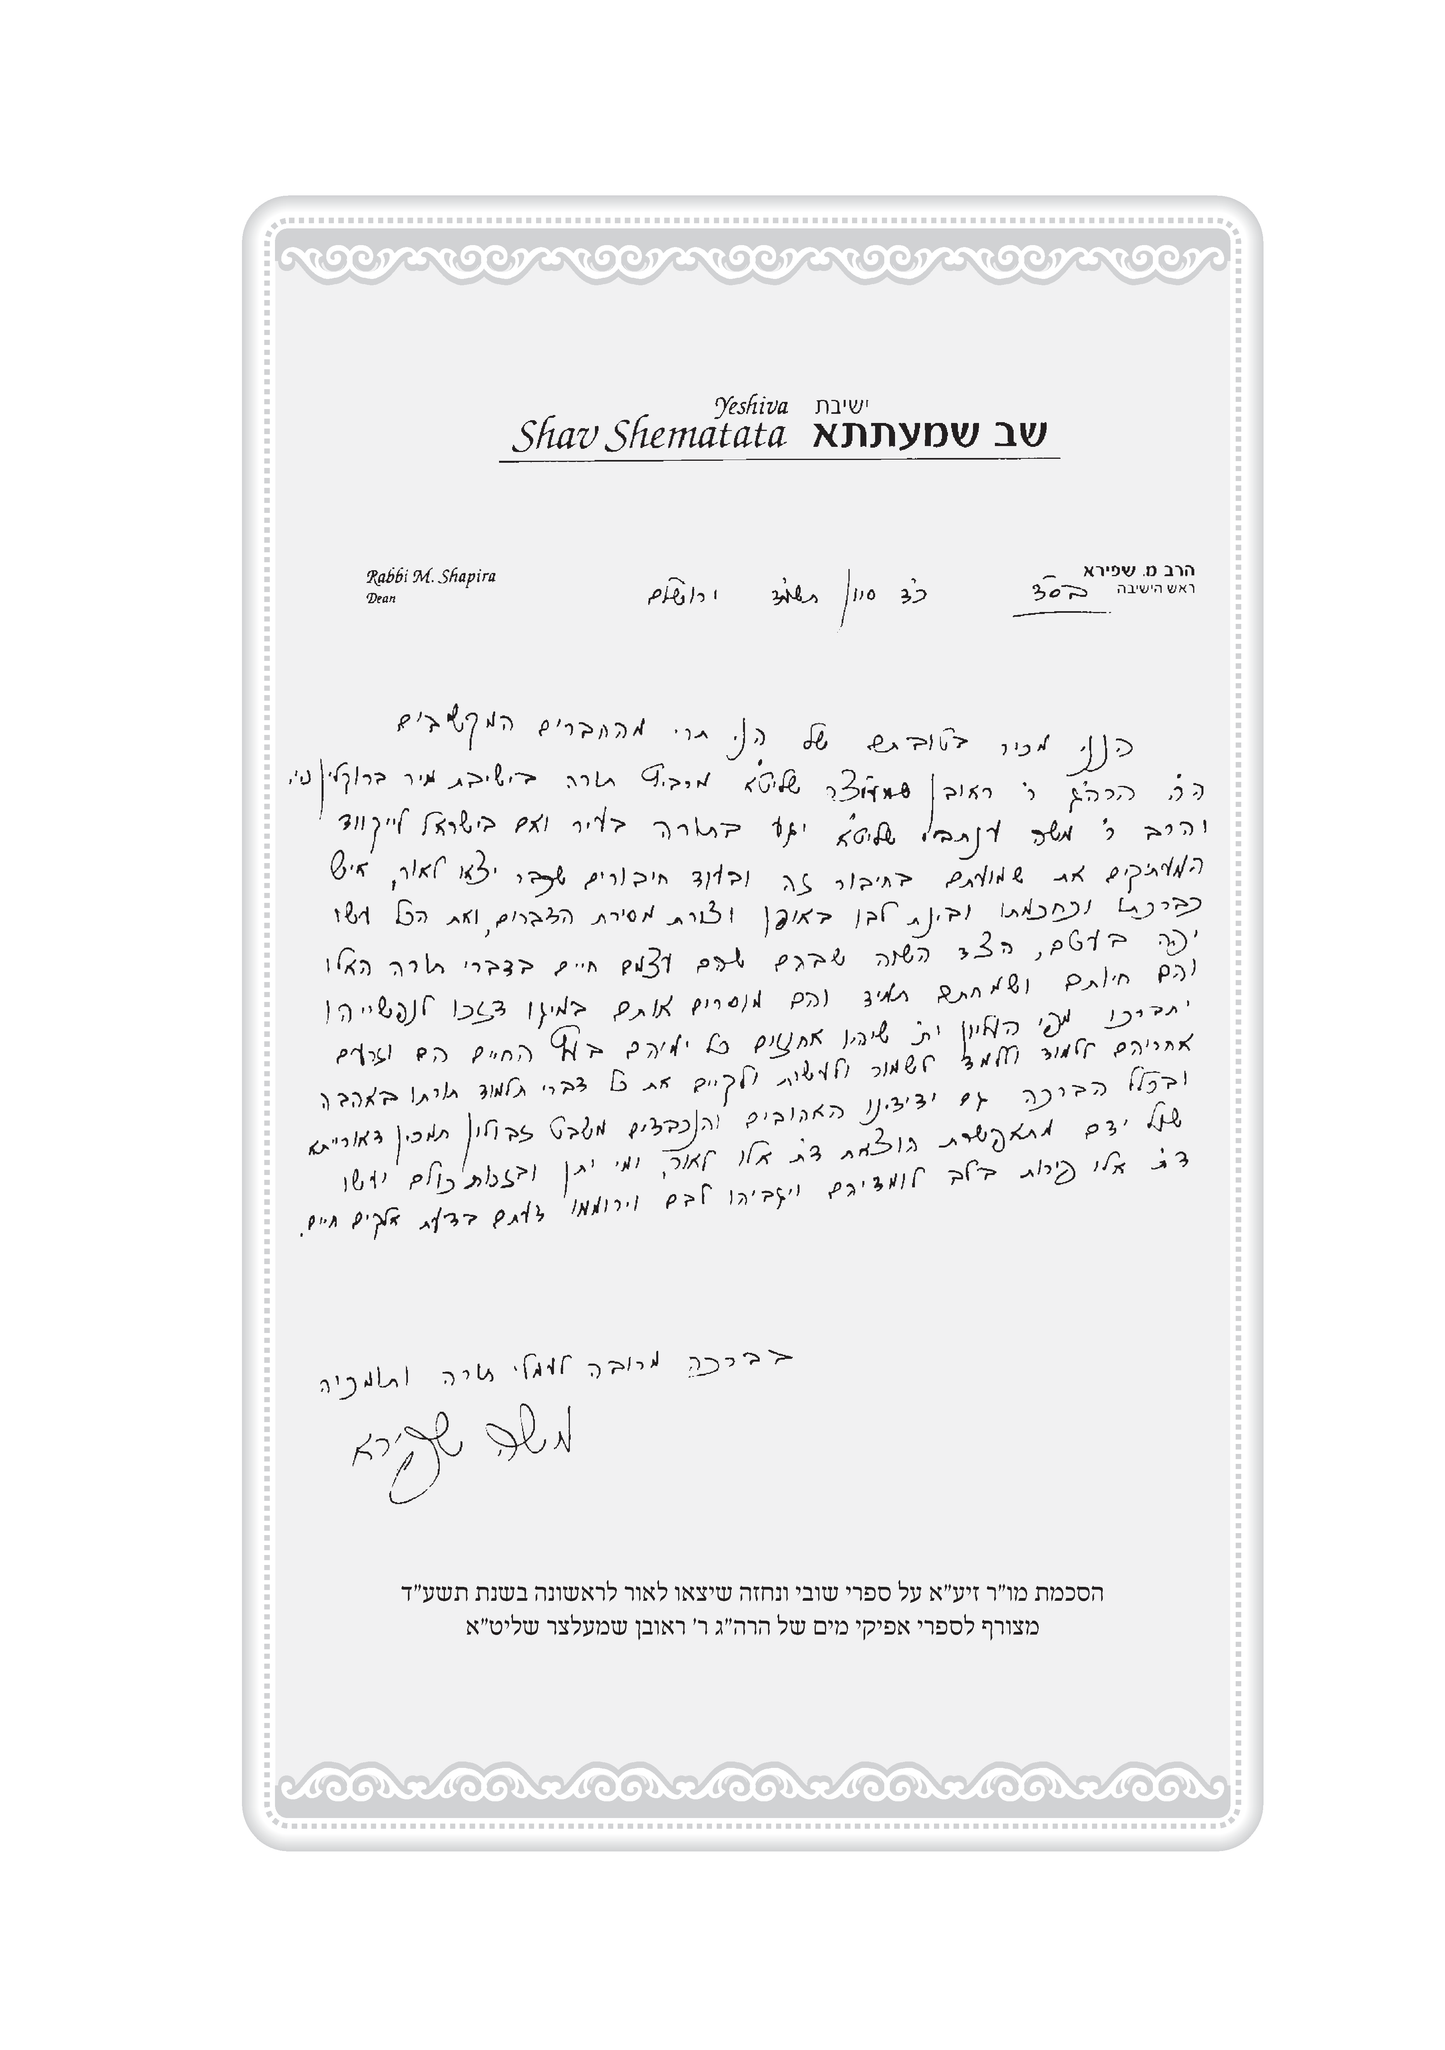 Yeshiva ישיבת
Shav Shematata שב שמעתתא
הרב מ. שפירא
ראש הישיבה
בס"ד
כ"ד סיון תשע"ד ירושלם
Rabbi M. Shapira
Dean
הנני מכיר בטובתם של הני תרי מהחברים המקשיבים
ה"ה הרה"ג ר' ראובן שמעלצר שליט"א מרביץ תורה בישיבת מיר ברוקלין
והרב ר' משה ענתבי שליט"א יגע בתורה בעיר ואם בישראל לייקווד
המעתיקים את שמועתם בחיבור זה ובעוד חיבורים שכבר יצאו לאור, איש
כברכתו וכחכמתו ובינת לבו באופן וצורת מסירת הדברים, ואת הכל עשו
יפה בעטם, הצד השוה שבהם שהם עצמם חיים בדברי תורה האלו
והם חיותם ושמחתם תמיד והם מוסרים אותם במיגו דזכו לנפשייהו
יתברכו מפי העליון ית' שיהיו אחוזים כל ימיהם בעץ החיים הם וזרעם
אחריהם ללמוד וללמד לשמור ולעשות ולקיים את כל דברי תלמוד תורתו באהבה
ובכלל הברכה גם ידידינו האהובים והנכבדים משבט זבולון תמכין דאורייתא
שעל ידם מתאפשרת הוצאת ד"ת אלו לאור, ומי יתן ובזכות כולם יעשו
ד"ת אלו פירות בלב לומדיהם ויגביהו לבם וירוממו דעתם בדעת אלקים חיים.
בברכה מרובה לעמלי תורה ותומכיה
משה שפירא
הסכמת מו"ר זיע"א על ספרי שובי ונחזה שיצאו לאור לראשונה בשנת תשע"ד
מצורף לספרי אפיקי מים של הרה"ג ר' ראובן שמעלצר שליט"א